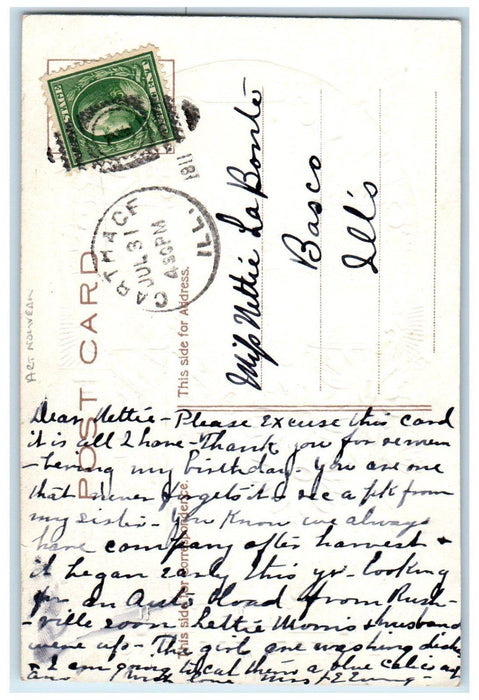 POST CARD
This side for Correspondence.
This side for Address.
ART NOUVEAU
CARTHAGE
JUL 31
4 30 PM
ILL.
1911
Miss Nettie La Bonte
Basco
Ill's
Dear Nettie - Please Excuse this card
it is all I have - Thank you for remem
- bering my birthday. You are one
that never forgets it - rec a pk from
my sister - You Know we always
have company after harvest &
it began early this yr - looking
for an Auto load from Rush-
- ville soon. Lettie Morris & husband
were up - The girls are washing dishes
- I am going to cut them a blue calico
and with love Miss